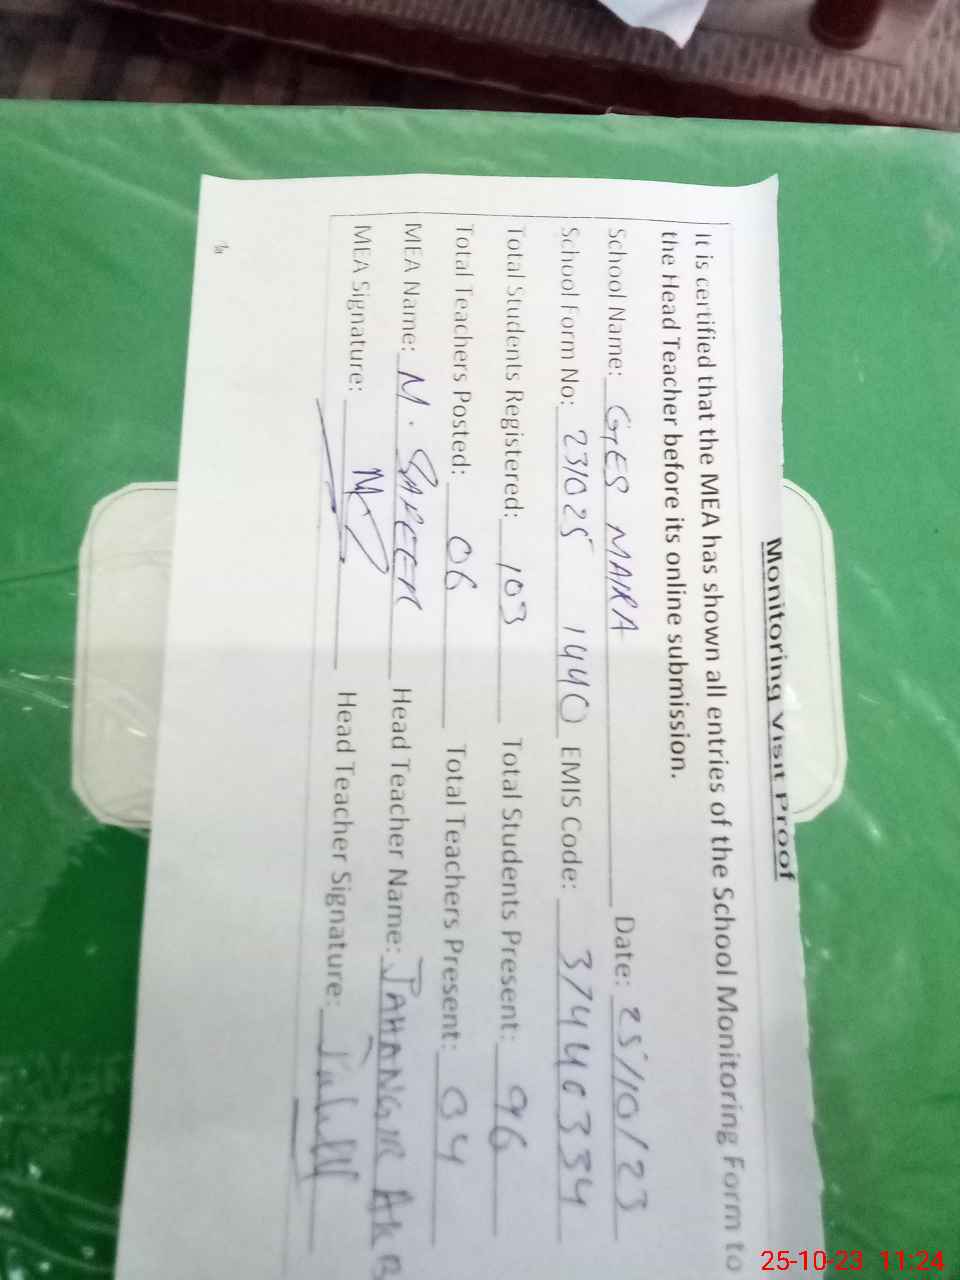 Monitoring Visit Proof
It is certified that the MEA has shown all entries of the School Monitoring Form to
the Head Teacher before its online submission.
School Name: GES MAIRA Date: 25/10/23
School Form No: 231025 1440 EMIS Code: 37440334
Total Students Registered: 103 Total Students Present: 96
Total Teachers Posted: 06 Total Teachers Present: 04
MEA Name: M. SAFEER Head Teacher Name: JAHANGIR AKB
MEA Signature: Head Teacher Signature:
25-10-23 11:24